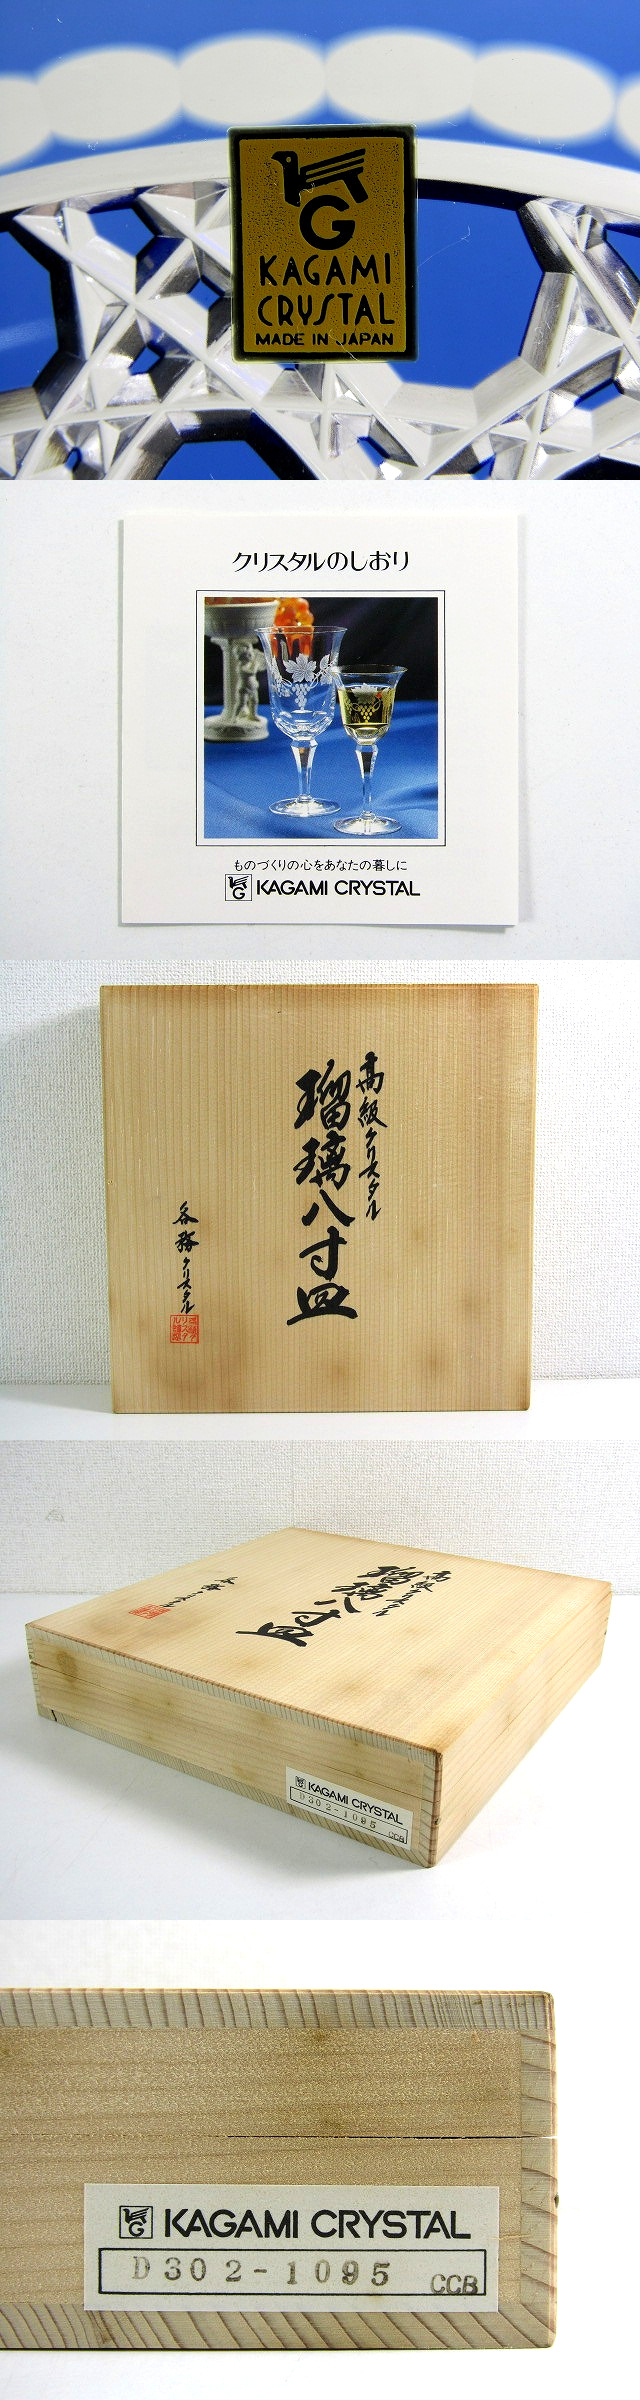 G
KAGAMI
CRYSTAL
MADE IN JAPAN
クリスタルのしおり
ものづくりの心をあなたの暮しに
G KAGAMI CRYSTAL
高級クリスタル
瑠璃八寸皿
各務クリスタル
高級クリスタル
瑠璃八寸皿
各務クリスタル
G KAGAMI CRYSTAL
D302-1095 CCB
G KAGAMI CRYSTAL
D302-1095 CCB